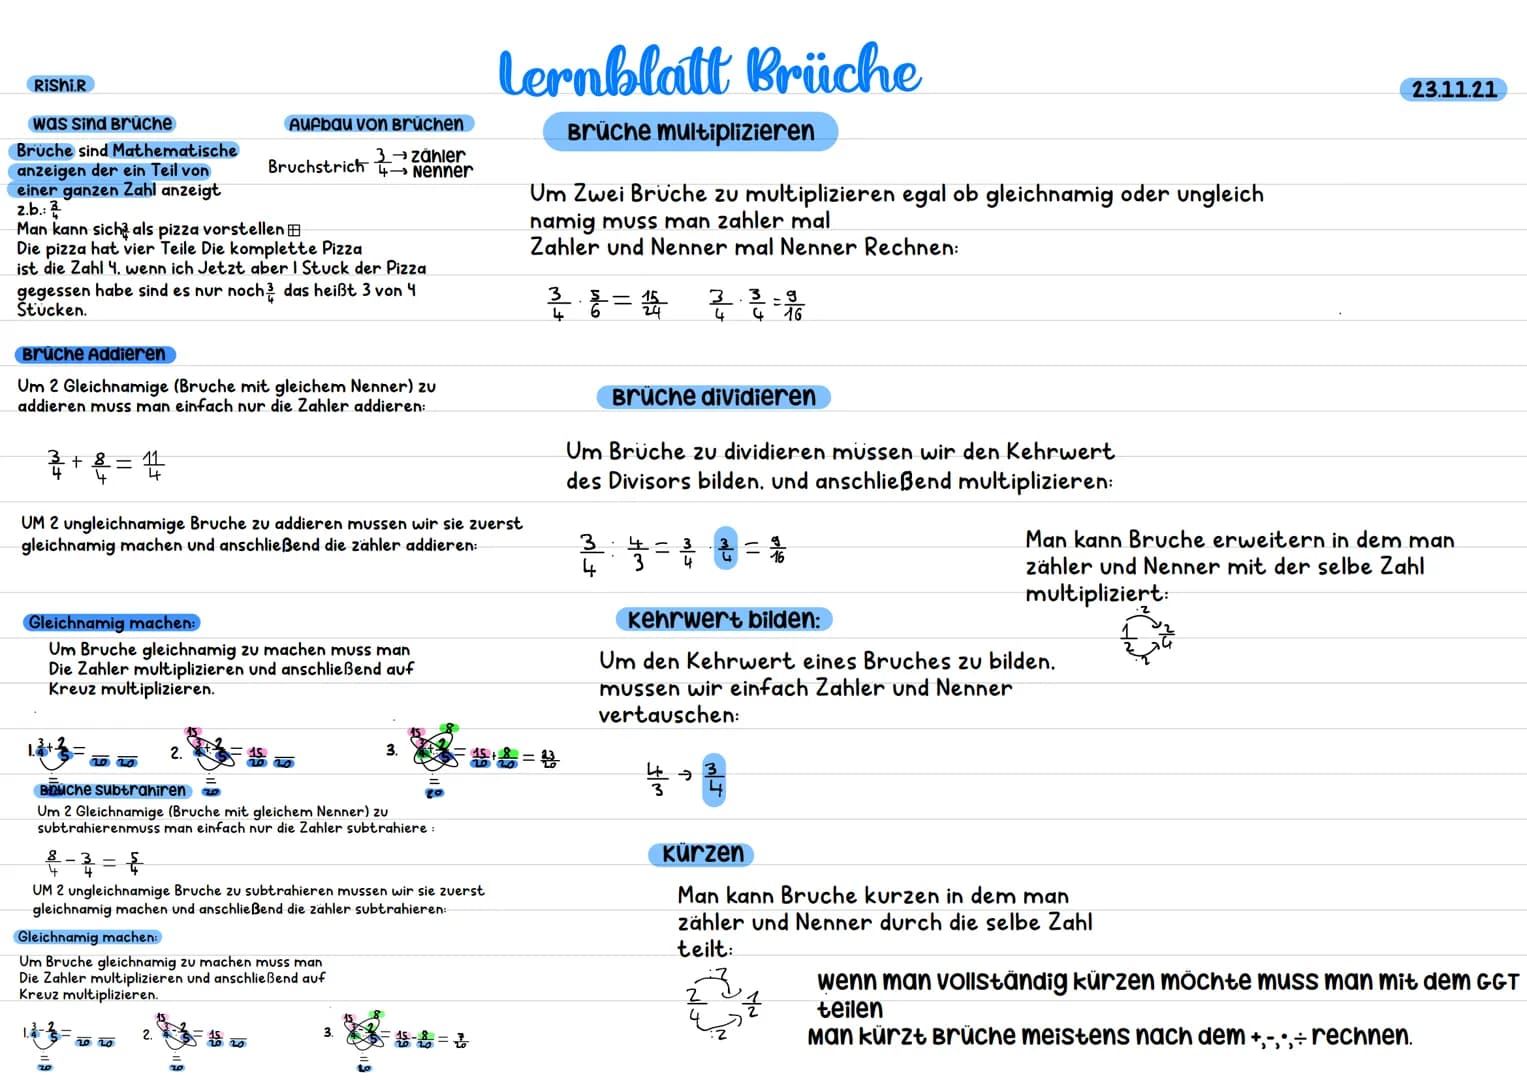 Lernblatt Brüche
Rishi.R
23.11.21
Was sind Brüche
Brüche sind Mathematische
anzeigen der ein Teil von
einer ganzen Zahl anzeigt
z.b.: 3/4
Man kann sich 3/4 als pizza vorstellen
Die pizza hat vier Teile Die komplette Pizza
ist die Zahl 4. wenn ich Jetzt aber 1 Stuck der Pizza
gegessen habe sind es nur noch 3/4 das heißt 3 von 4
Stücken.
Aufbau von Brüchen
Bruchstrich 3/4 → zähler
→ Nenner
Brüche Addieren
Um 2 Gleichnamige (Bruche mit gleichem Nenner) zu
addieren muss man einfach nur die Zahler addieren:
3/4 + 8/4 = 11/4
UM 2 ungleichnamige Bruche zu addieren mussen wir sie zuerst
gleichnamig machen und anschließend die zähler addieren:
Gleichnamig machen:
Um Bruche gleichnamig zu machen muss man
Die Zahler multiplizieren und anschließend auf
Kreuz multiplizieren.
1. 3/4 + 2/5 = /20 /20
= 
2. 15 3/4 + 2/5 = 15/20 /20
= 20
3. 15 8 3/4 + 2/5 = 15/20 + 8/20 = 23/20
= 20
Brüche subtrahiren
Um 2 Gleichnamige (Bruche mit gleichem Nenner) zu
subtrahierenmuss man einfach nur die Zahler subtrahiere :
8/4 - 3/4 = 5/4
UM 2 ungleichnamige Bruche zu subtrahieren mussen wir sie zuerst
gleichnamig machen und anschließend die zähler subtrahieren:
Gleichnamig machen:
Um Bruche gleichnamig zu machen muss man
Die Zahler multiplizieren und anschließend auf
Kreuz multiplizieren.
1. 3/4 - 2/5 = /20 /20
= 20
2. 15 3/4 - 2/5 = 15/20 /20
= 20
3. 15 8 3/4 - 2/5 = 15/20 - 8/20 = 7/20
= 20
Brüche multiplizieren
Um Zwei Brüche zu multiplizieren egal ob gleichnamig oder ungleich
namig muss man zahler mal
Zahler und Nenner mal Nenner Rechnen:
3/4 · 5/6 = 15/24 3/4 · 3/4 = 9/16
Brüche dividieren
Um Brüche zu dividieren müssen wir den Kehrwert
des Divisors bilden. und anschließend multiplizieren:
3/4 : 4/3 = 3/4 · 3/4 = 9/16
Kehrwert bilden:
Um den Kehrwert eines Bruches zu bilden.
mussen wir einfach Zahler und Nenner
vertauschen:
4/3 → 3/4
Man kann Bruche erweitern in dem man
zähler und Nenner mit der selbe Zahl
multipliziert:
·2
1/2 2/4
·2
Kürzen
Man kann Bruche kurzen in dem man
zähler und Nenner durch die selbe Zahl
teilt:
:2
2/4 1/2
:2
wenn man vollständig kürzen möchte muss man mit dem GGT
teilen
Man kürzt Brüche meistens nach dem +,-,·,÷ rechnen.